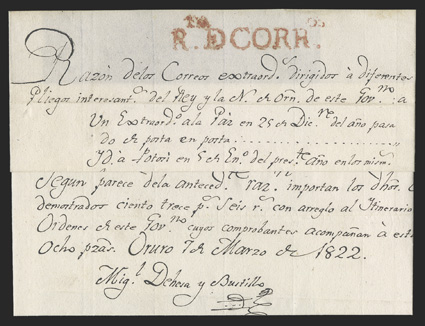 Rl. D CORR.os
Razón delos Correos extraord.s dirigidos à diferentes
Pliegos interesant.s del Rey y la N. de Orñ. de este Gov.no a
Un Extraord.o ala Paz en 25 de Dic.re del año pasa
do de porta en porta
Yd. à Potosi en 5 de En.o del pres.te año en los mism.s
Segun parece dela anteced.te raz.n importan los dhõs.
demostrados ciento trece p.s Seis r.s con arreglo al Itinerario
Ordenes de este Gov.no cuyos comprobantes acompañan à est
Ocho pzãs. Oruro 7 de Marzo de 1822.
Mig.l Dehesa y Bustillo